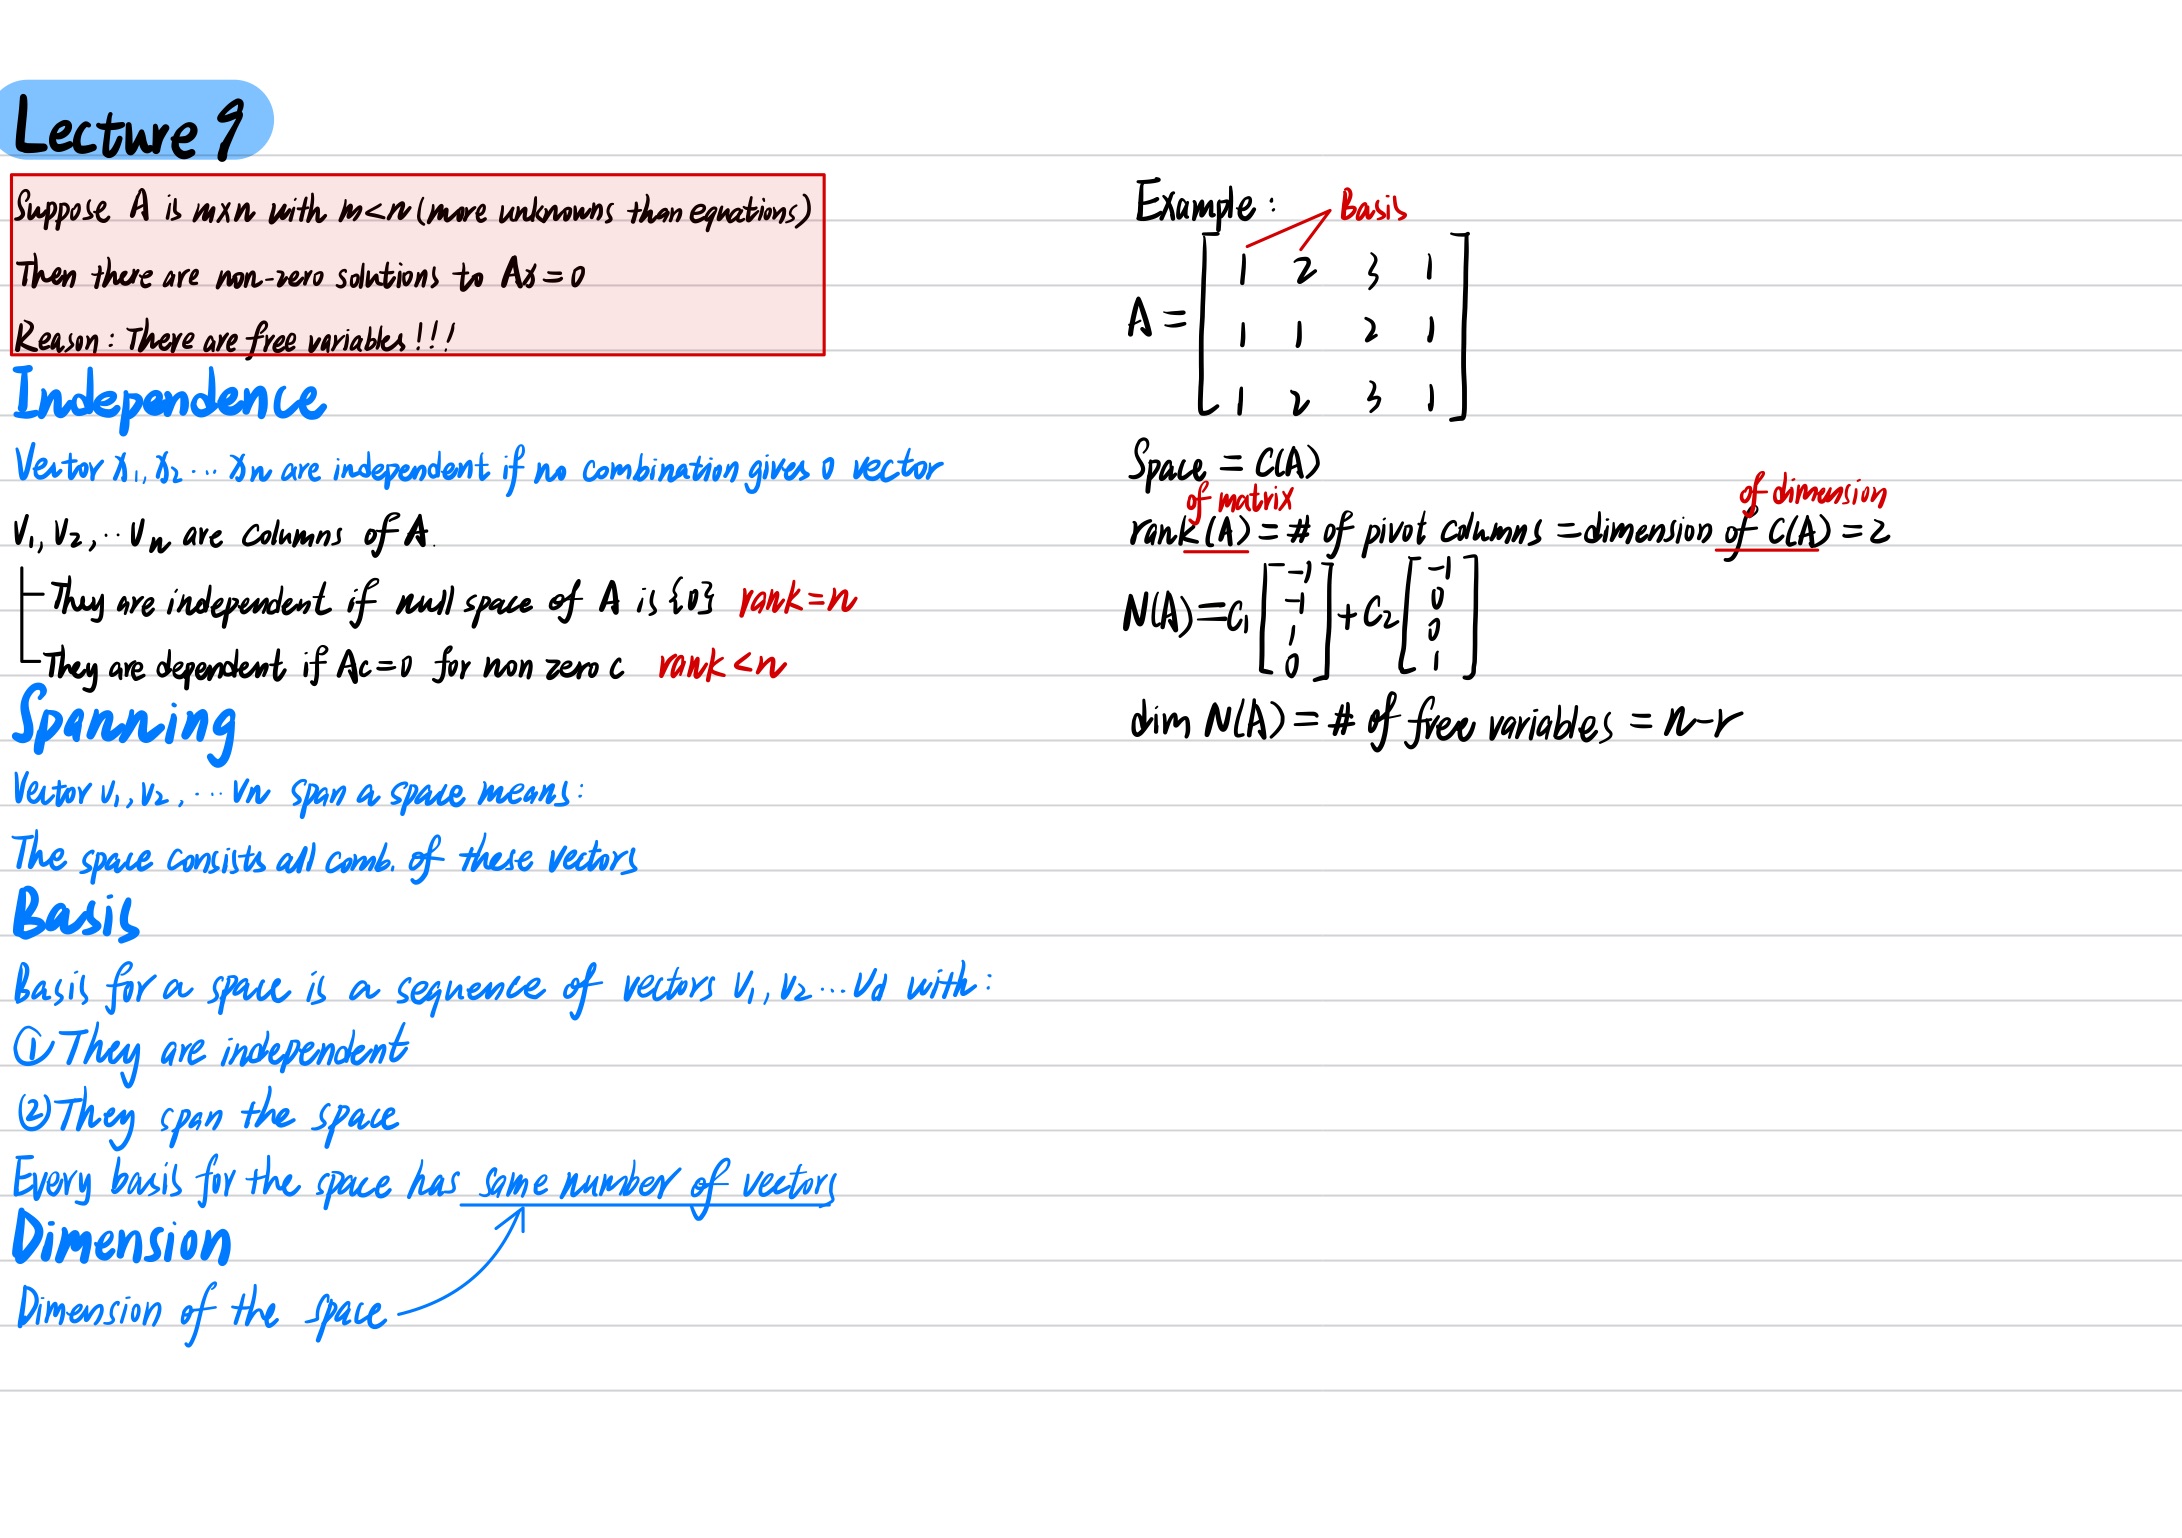 Lecture 9
Suppose A is m×n with m<n (more unknowns than equations)
Then there are non-zero solutions to Ax=0
Reason: There are free variables!!!
Independence
Vector x₁, x₂ ... xn are independent if no combination gives 0 vector
v₁, v₂, ·· vn are columns of A.
They are independent if null space of A is {0} rank=n
They are dependent if Ac=0 for non zero c rank<n
Spanning
Vector v₁, v₂, ... vn span a space means:
The space consists all comb. of these vectors
Basis
Basis for a space is a sequence of vectors v₁, v₂ ... vd with:
① They are independent
② They span the space
Every basis for the space has same number of vectors
Dimension
Dimension of the space
Example:
Basis
A = [ 1 2 3 1
1 1 2 1
1 2 3 1 ]
Space = C(A)
of matrix of dimension
rank(A) = # of pivot columns = dimension of C(A) = 2
N(A) = C₁ [ -1 -1 1 0 ] + C₂ [ -1 0 0 1 ]
dim N(A) = # of free variables = n-r